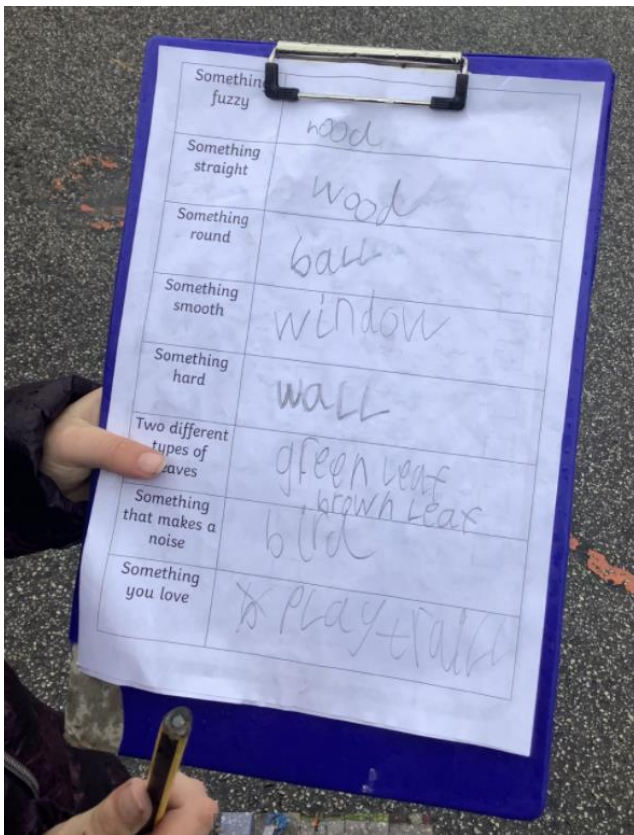 Something
fuzzy
hood
Something
straight
wood
Something
round
ball
Something
smooth
window
Something
hard
wall
Two different
types of
leaves
green leaf
brown leaf
Something
that makes a
noise
bird
Something
you love
play traill